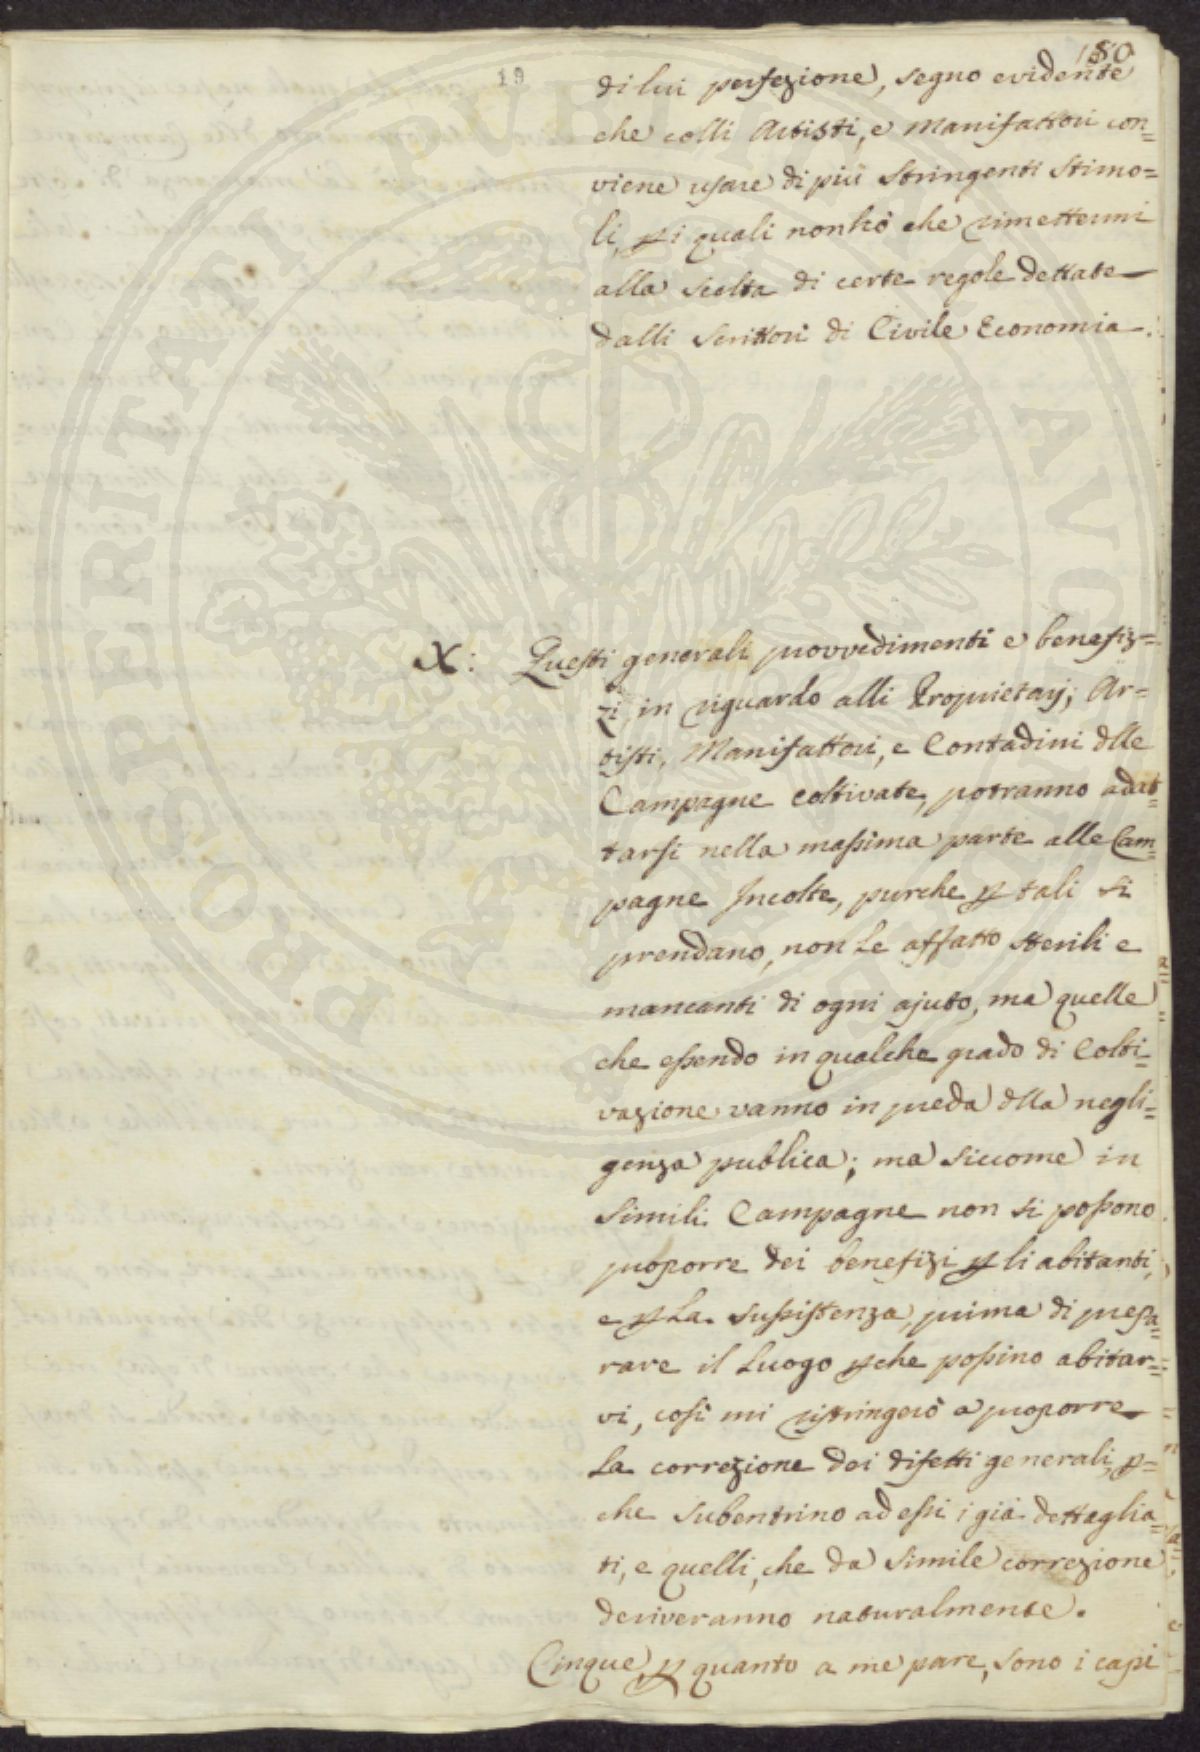 180
19
di lui perfezione, segno evidente
che colli Artisti, e Manifattori con=
viene usare di più stringenti stimo=
li, p i quali non hò che rimettermi
alla scelta di certe regole dettate
dalli Scrittori di Civile Economia.
X: Questi generali provvedimenti e benefiz=
zi, in riguardo alli Proprietarj, Ar=
tisti, Manifattori, e Contadini dlle
Campagne coltivate, potranno adat=
tarsi nella massima parte alle Cam=
pagne Incolte, purche p tali si
prendano, non le affatto sterili e
mancanti di ogni ajuto, ma quelle
che essendo in qualche grado di Colti=
vazione vanno in preda dlla negli=
genza publica; ma siccome in
simili Campagne non si possono
proporre dei benefizi p li abitanti,
e p la sussistenza, prima di prepa=
rare il luogo pche possino abitar=
vi, così mi ristringerò a proporre
la correzione dei difetti generali, p=
che subentrino ad essi i già dettaglia=
ti, e quelli, che da simile correzione
deriveranno naturalmente.
Cinque, p quanto a me pare, sono i capi
PROSPERITATI PUBLICAE AUGENDAE